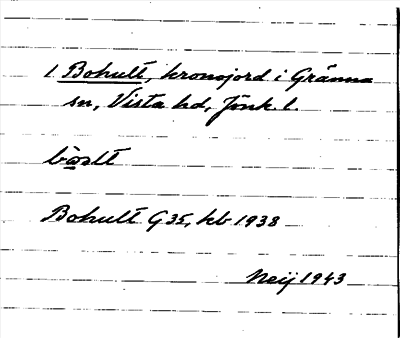 1. Bohult, kronojord i Gränna
sn, Vista hd, Jönk. l.
Bohult G 35, kb 1938
Neij 1943